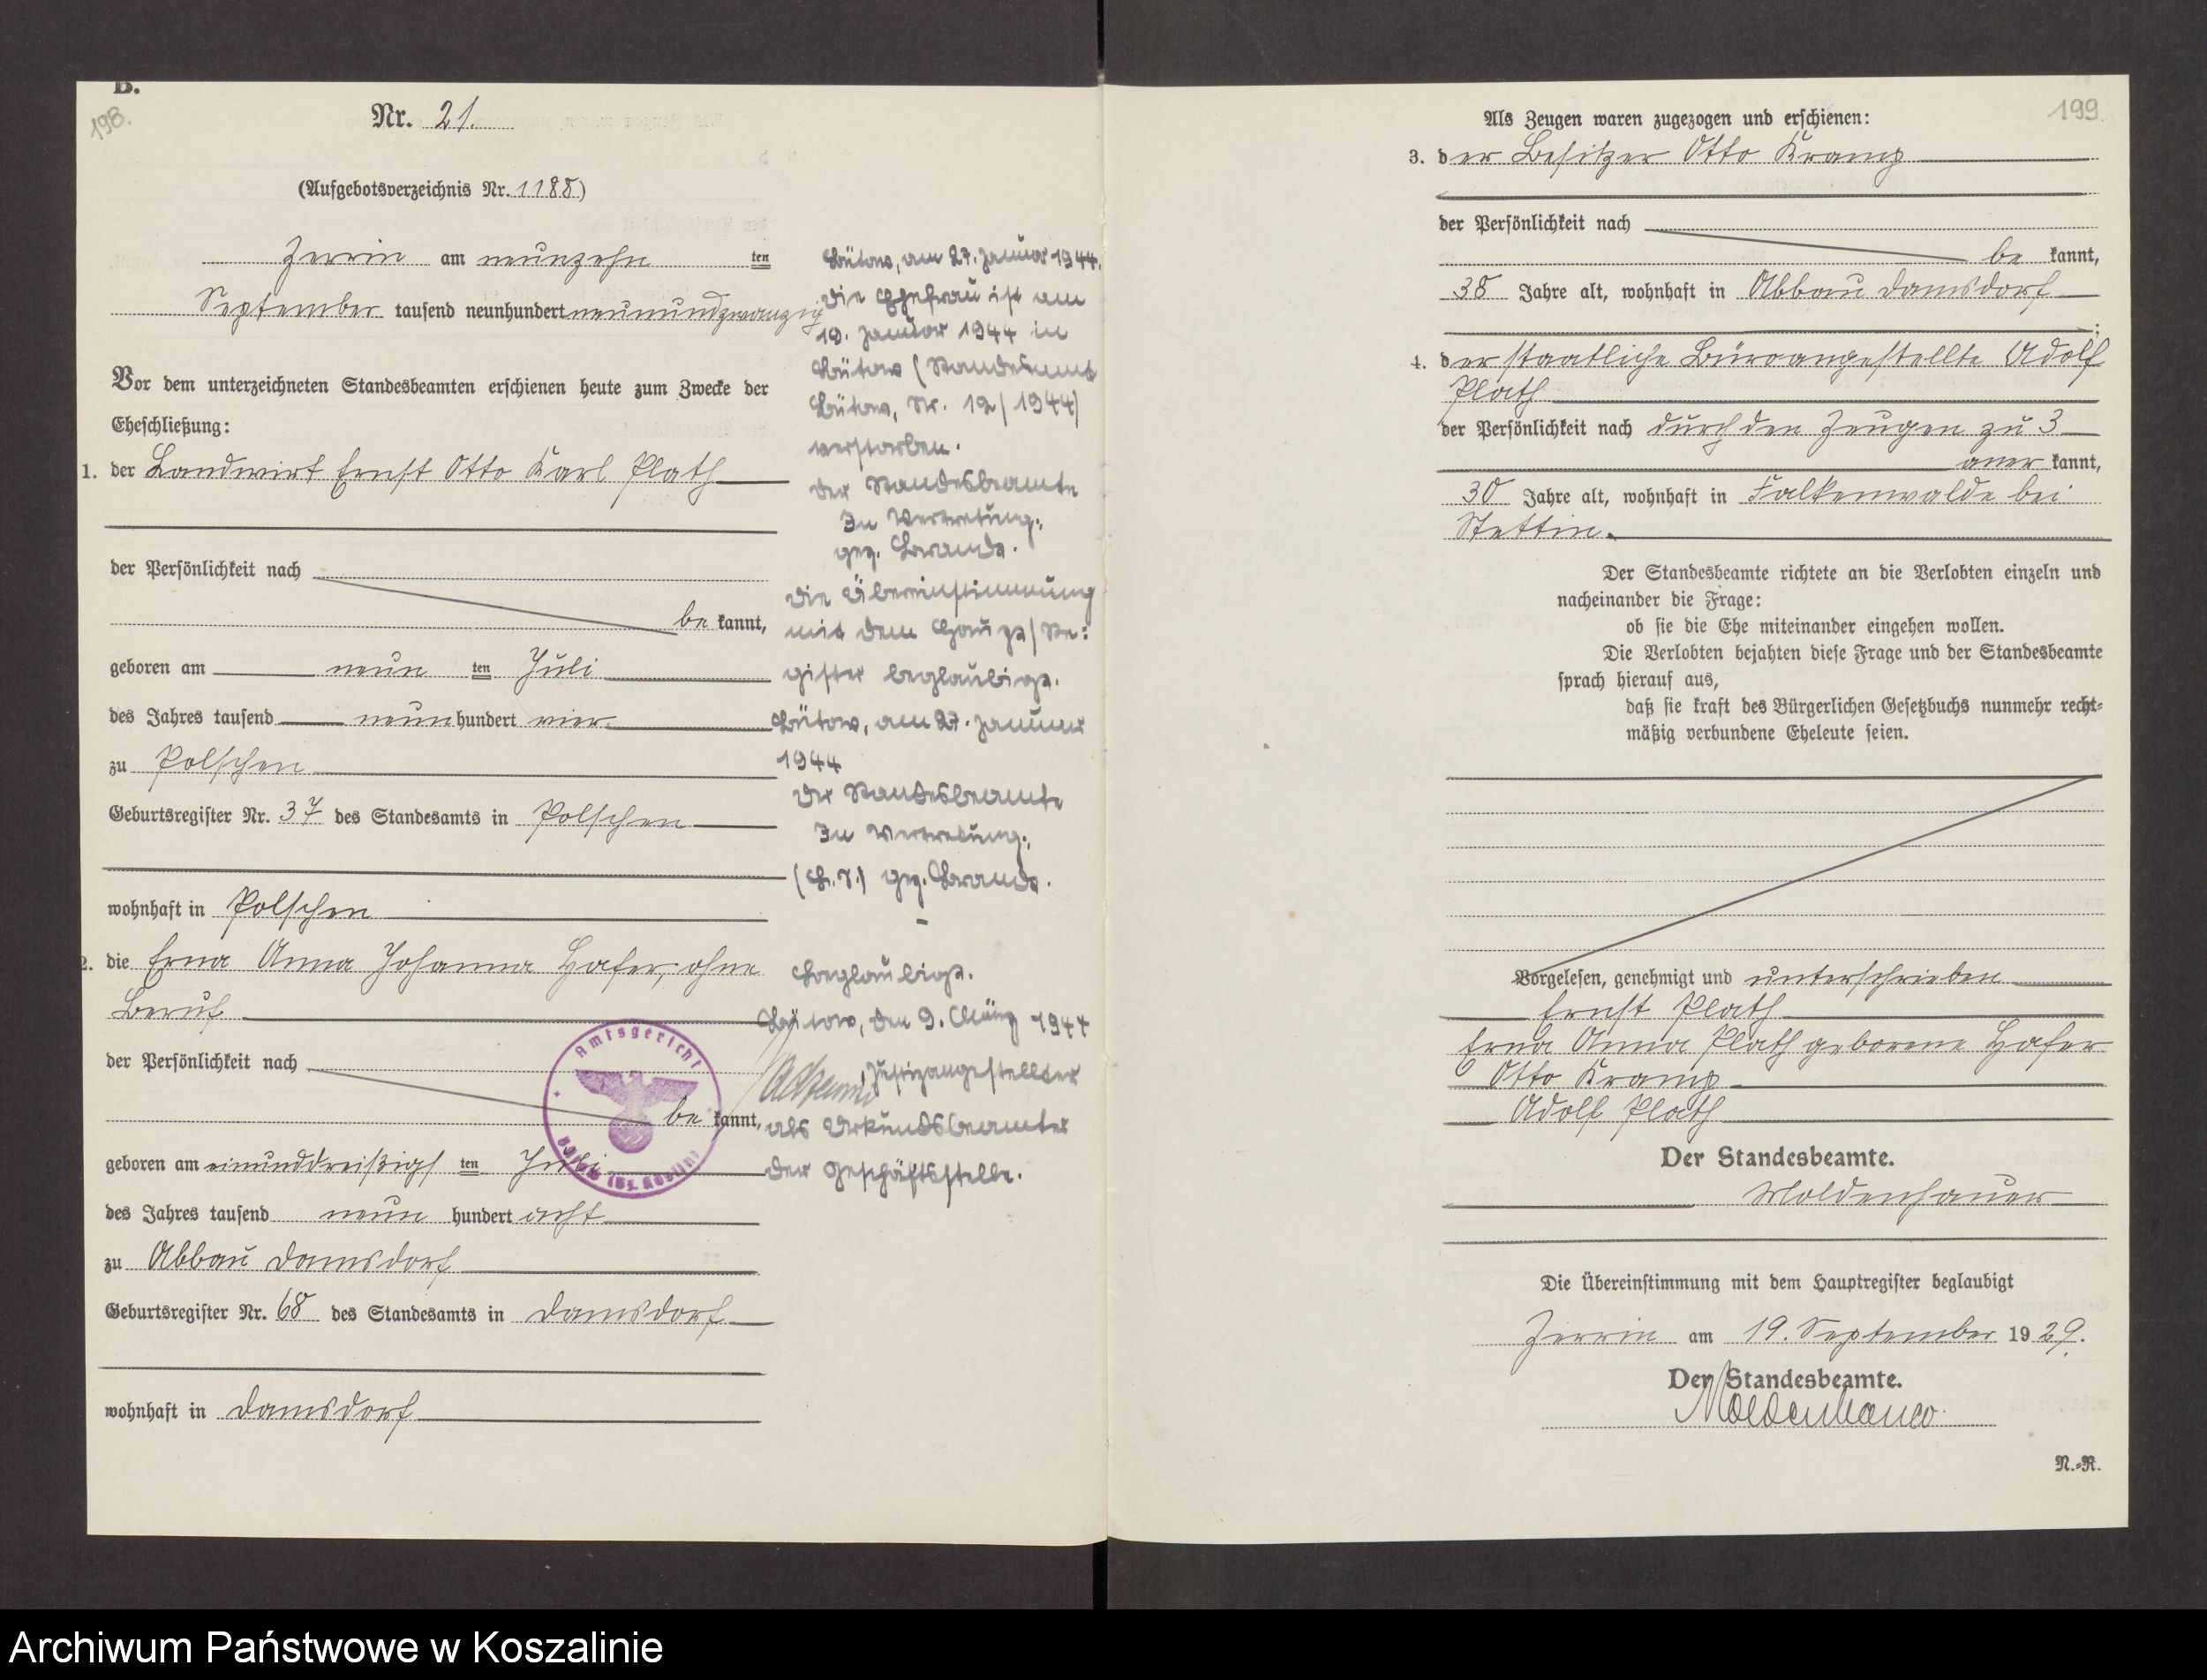 B.
198.
Nr. 21.
(Aufgebotsverzeichnis Nr. 1188)
Zerrin am neunzehn ten
September tausend neunhundert neunundzwanzig
Vor dem unterzeichneten Standesbeamten erschienen heute zum Zwecke der
Eheschließung:
1. der Landwirt Ernst Otto Karl Plath
der Persönlichkeit nach
be kannt,
geboren am neun ten Juli
des Jahres tausend neun hundert vier
zu Polschen
Geburtsregister Nr. 37 des Standesamts in Polschen
wohnhaft in Polschen
2. die Erna Anna Johanna Hafer, ohne
Beruf
der Persönlichkeit nach
be kannt,
geboren am einunddreißigst ten Juli
des Jahres tausend neun hundert acht
zu Abbau Damsdorf
Geburtsregister Nr. 68 des Standesamts in Damsdorf
wohnhaft in Damsdorf
Bütow, am 27. Januar 1944.
Die Ehefrau ist am
19. Januar 1944 in
Bütow (Standesamt
Bütow, Nr. 12/1944)
verstorben.
Der Standesbeamte
In Vertretung:
gez. Brandt.
Die Übereinstimmung
mit dem Haupt/Re:
gister beglaubigt.
Bütow, am 27. Januar
1944
Der Standesbeamte
In Vertretung:
(L.S.) gez. Brandt.
Beglaubigt.
Bütow, den 9. März 1944
, Justizangestellter
als Urkundsbeamter
der Geschäftsstelle.
Amtsgericht
Bütow (Bz. Köslin)
199.
Als Zeugen waren zugezogen und erschienen:
3. der Besitzer Otto Kramp
der Persönlichkeit nach
be kannt,
38 Jahre alt, wohnhaft in Abbau Damsdorf
;
4. der staatliche Büroangestellte Adolf
Plath
der Persönlichkeit nach durch den Zeugen zu 3
aner kannt,
30 Jahre alt, wohnhaft in Falkenwalde bei
Stettin.
Der Standesbeamte richtete an die Verlobten einzeln und
nacheinander die Frage:
ob sie die Ehe miteinander eingehen wollen.
Die Verlobten bejahten diese Frage und der Standesbeamte
sprach hierauf aus,
daß sie kraft des Bürgerlichen Gesetzbuchs nunmehr recht-
mäßig verbundene Eheleute seien.
Vorgelesen, genehmigt und unterschrieben
Ernst Plath
Erna Anna Plath geborene Hafer
Otto Kramp
Adolf Plath
Der Standesbeamte.
Moldenhauer
Die Übereinstimmung mit dem Hauptregister beglaubigt
Zerrin am 19. September 1929.
Der Standesbeamte.
Moldenhauer
N.-R.
Archiwum Państwowe w Koszalinie